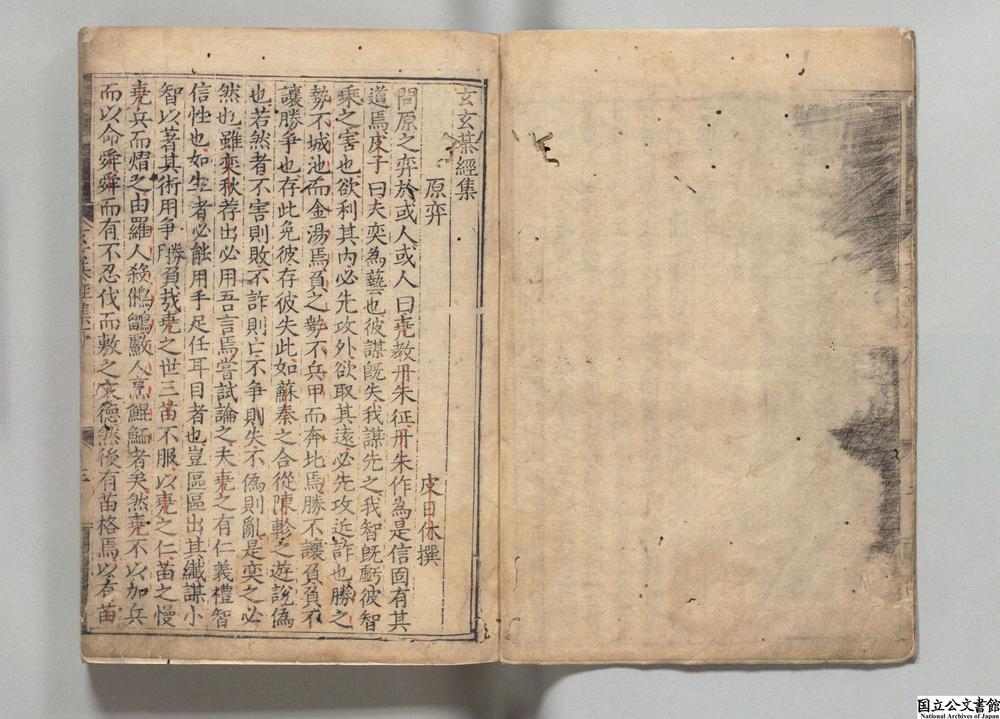 玄玄棊經集
原弈
皮日休撰
問原之弈於或人或人曰堯教丹朱征丹朱作為是信固有其
道焉皮子曰夫奕為藝也彼謀旣失我謀先之我智旣虧彼智
乘之害也欲利其內必先攻外欲取其遠必先攻近詐也勝之
勢不城池而金湯焉負之勢不兵甲而奔北焉勝不讓負負不
讓勝爭也存此免彼存彼失此如蘇秦之合從陳軫之遊說偽
也若然者不害則敗不詐則亡不爭則失不偽則亂是奕之必
然也雖奕秋荐出必用吾言焉嘗試論之夫堯之有仁義禮智
信性也如生者必能用手足任耳目者也豈區區出其纖謀小
智以著其術用爭勝負哉堯之世三苗不服以堯之仁苗之慢
堯兵而熠之由羅人殺鴻鶵䱷人烹鯤鱦者矣然堯不以加兵
而以命舜舜而有不忍伐而敷之文德然後有苗格焉以有苗
国立公文書館
National Archives of Japan